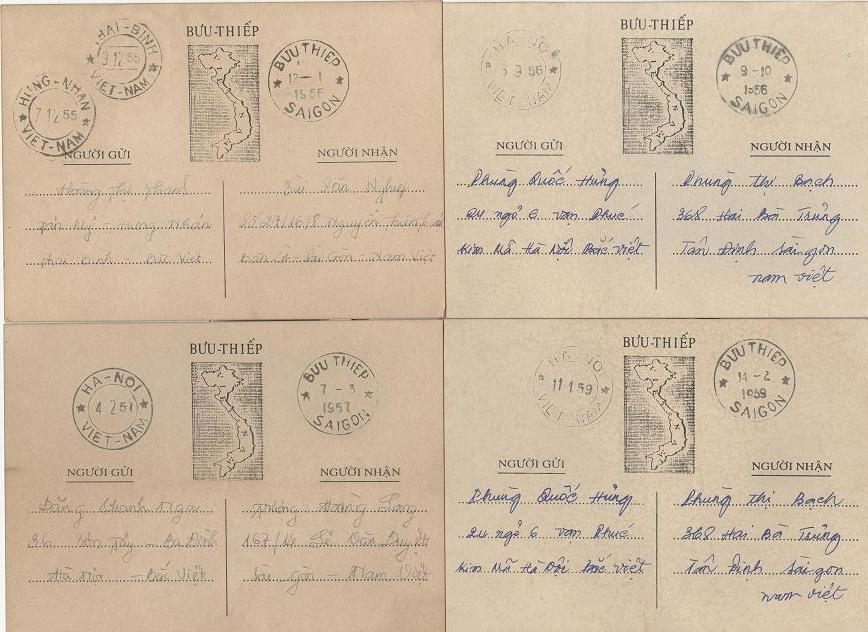 BƯU-THIẾP
HAI-BINH
9 12 55
VIET-NAM
HUNG-NHAN
7 12 55
VIET-NAM
BUU THIEP
12 - 1
1956
SAIGON
NGƯỜI GỬI
NGƯỜI NHẬN
Hưng Nhân
Bắc Việt
Bùi Văn
Nguyễn
Sài Gòn - Nam Việt
BƯU-THIẾP
HA-NOI
9 56
VIET-NAM
BUU THIEP
9 - 10
1956
SAIGON
NGƯỜI GỬI
NGƯỜI NHẬN
Phùng Quốc Hùng
24 ngỏ 6 vạn Phúc
Kim Mã Hà Nội Bắc việt
Phung Thị Bạch
368 Hai Bà Trưng
Tân Định Sàigon
nam việt
BƯU-THIẾP
HA-NOI
4 2 57
VIET-NAM
BUU THIEP
7 - 3
1957
SAIGON
NGƯỜI GỬI
NGƯỜI NHẬN
Đặng Khanh
36 Sơn Tây - Ba Đình
Hà Nội - Bắc Việt
Hoàng Long
Lê Văn Duyệt
Sài gòn - Nam Việt
BƯU-THIẾP
HA-NOI
11 1 59
VIET-NAM
BUU THIEP
14 - 2
1959
SAIGON
NGƯỜI GỬI
NGƯỜI NHẬN
Phùng Quốc Hùng
24 ngỏ 6 vạn Phúc
Kim Mã Hà Nội Bắc việt
Phung Thị Bạch
368 Hai Bà Trưng
Tân Định Sàigon
nam việt